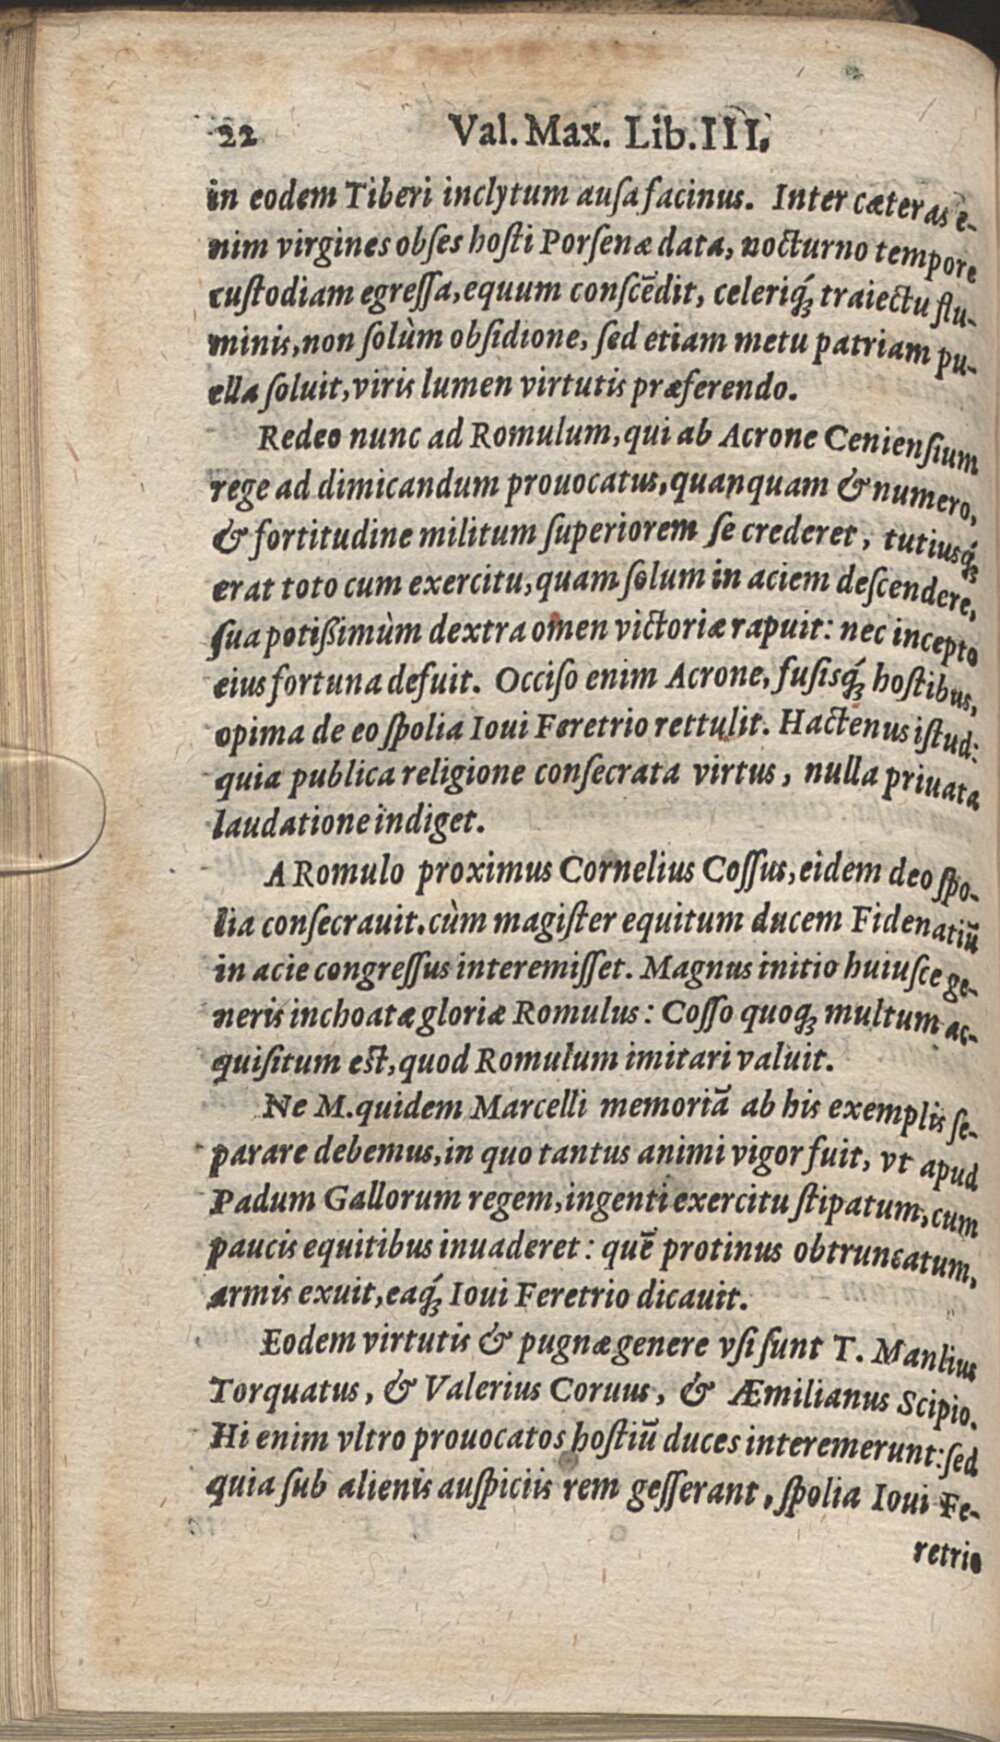 22 Val. Max. Lib. III.
in eodem Tiberi inclytum auſa facinus. Inter cæteras e-
nim virgines obſes hoſti Porſenæ data, nocturno tempore
cuſtodiam egreſſa, equum conſcēdit, celeriq́; traiectu flu-
minis, non ſolùm obſidione, ſed etiam metu patriam pu-
ella ſoluit, viris lumen virtutis præferendo.
Redeo nunc ad Romulum, qui ab Acrone Cenienſium
rege ad dimicandum prouocatus, quanquam & numero,
& fortitudine militum ſuperiorem ſe crederet, tutiusq́;
erat toto cum exercitu, quam ſolum in aciem deſcendere,
ſua potißimùm dextra omen victoriæ rapuit: nec incepto
eius fortuna defuit. Occiſo enim Acrone, fuſisq́; hoſtibus,
opima de eo ſpolia Ioui Feretrio rettulit. Hactenus iſtud:
quia publica religione conſecrata virtus, nulla priuata
laudatione indiget.
A Romulo proximus Cornelius Coſſus, eidem deo ſpo-
lia conſecrauit. cùm magiſter equitum ducem Fidenatiū
in acie congreſſus interemiſſet. Magnus initio huiuſce ge-
neris inchoatæ gloriæ Romulus: Coſſo quoq; multum ac-
quiſitum eſt, quod Romulum imitari valuit.
Ne M. quidem Marcelli memoriā ab his exemplis ſe-
parare debemus, in quo tantus animi vigor fuit, vt apud
Padum Gallorum regem, ingenti exercitu ſtipatum, cum
paucis equitibus inuaderet: quē protinus obtruncatum,
armis exuit, eaq́; Ioui Feretrio dicauit.
Eodem virtutis & pugnæ genere vſi ſunt T. Manlius
Torquatus, & Valerius Coruus, & Æmilianus Scipio.
Hi enim vltro prouocatos hoſtiū duces interemerunt: ſed
quia ſub alienis auſpiciis rem geſſerant, ſpolia Ioui Fe-
retrio